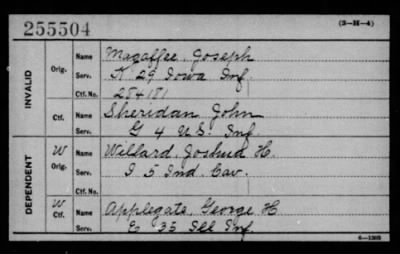 255504 (3-H-4)
INVALID
Orig. Name Magaffee, Joseph
Serv. K 29 Iowa Inf.
Ctf. No. 284181
Ctf. Name Sheridan John
Serv. G 4 U.S. Inf.
DEPENDENT
W Orig. Name Willard, Joshua H.
Serv. I 5 Ind. Cav.
Ctf. No.
W Ctf. Name Applegate, George H
Serv. E 35 Ill Inf.